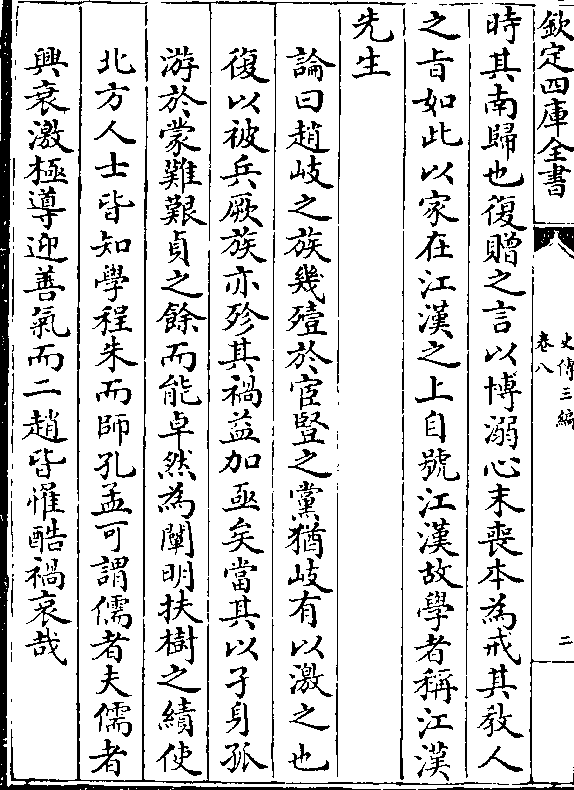 欽定四庫全書
史傳三編
卷八
二
時其南歸也復贈之言以博溺心末喪本為戒其教人
之旨如此以家在江漢之上自號江漢故學者稱江漢
先生
論曰趙岐之族幾殪於宦豎之黨猶岐有以激之也
復以被兵厥族亦殄其禍益加亟矣當其以孑身孤
游於蒙難艱貞之餘而能卓然為闡明扶樹之績使
北方人士皆知學程朱而師孔孟可謂儒者夫儒者
興衰激極導迎善氣而二趙皆惟酷禍哀哉